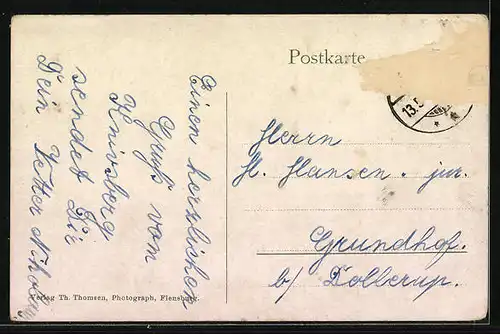 Postkarte
13.5
Einen herzlichen
Gruß von
Knivsberg
sendet Dir
Dein Vetter
Herrn
H. Hansen. jur.
Grundhof.
b/ Dollerup.
Verlag Th. Thomsen, Photograph, Flensburg.